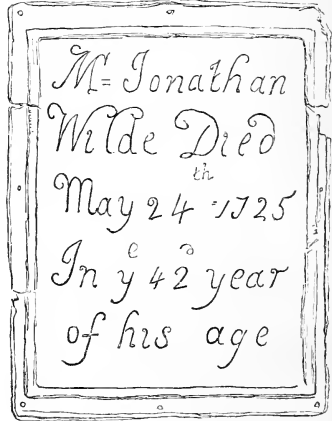 Mr= Jonathan
Wilde Died
May 24th 1725
In ye 42d year
of his age